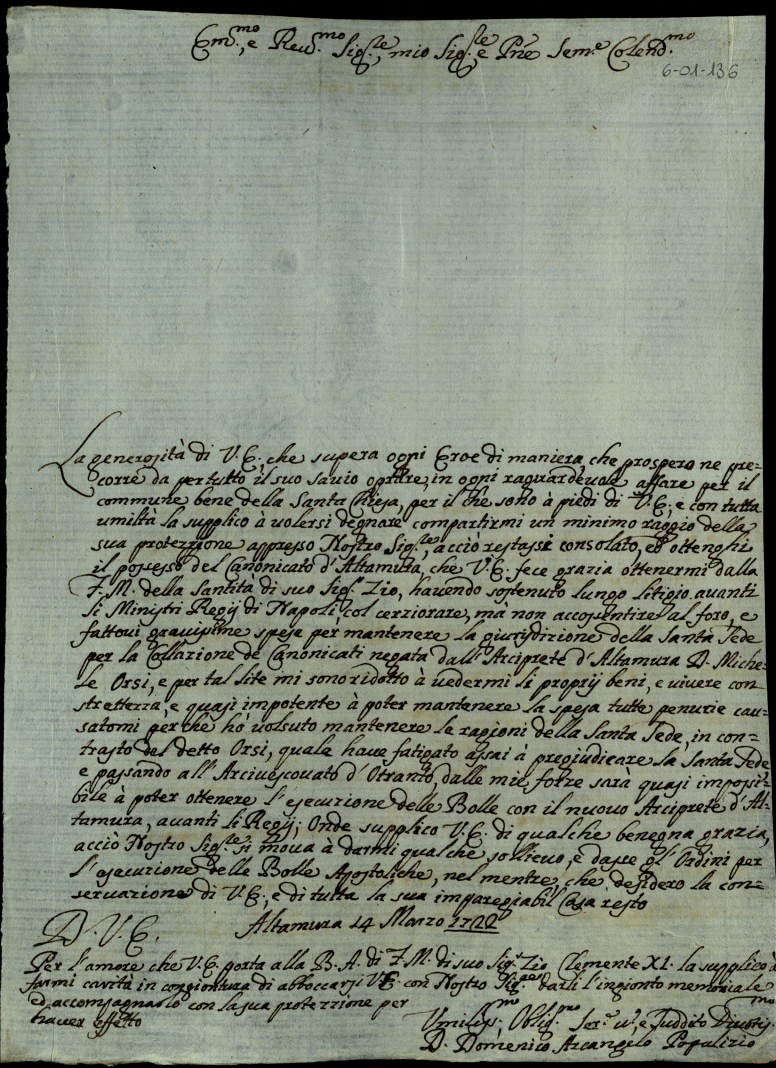 Em.mo, e Reu.mo Sig.re, mio Sig.re, e Pne Sem.e Colend.mo
6-01-136
La generosità di V. E., che supera ogni Eroe di maniera, che prospero ne pre=
corre da per tutto il suo savio oprare, in ogni raguardevole affare per il
commune bene della Santa Chiesa, per il che sono à piedi di V. E., e con tutta
umiltà la supplico à volersi degnare compartirmi un minimo raggio della
sua protezzione appresso Nostro Sig.re, acciò restassi consolato, ed ottenghi
il possesso del Canonicato d'Altamura, che V. E. fece grazia ottenermi dalla
F. M. della Santità di suo Sig.r Zio, havendo sostenuto lungo litigio avanti
li Ministri Regij di Napoli, col cerziorare, mà non accosentire al foro, e
fattovi gravissime spese per mantenere la giurisdizione della Santa Sede
per la Collazione de Canonicati negata dall'Arciprete d'Altamura D. Miche=
le Orsi, e per tal lite mi sono ridotto à vedermi li proprij beni, e vivere con
strettezza, e quasi impotente à poter mantenere la spesa tutte penurie cau=
satomi perche hò volsuto mantenere le ragioni della Santa Sede, in con=
trasto del detto Orsi, quale have fatigato assai à pregiudicare la Santa Sede
e passando all'Arcivescovato d'Otranto, dalle mie forze sarà quasi impossi=
bile à poter ottenere l'esecuzione delle Bolle con il nuovo Arciprete d'Al=
tamura, avanti li Regij; Onde supplico V. E. di qualche benegna grazia,
acciò Nostro Sig.re si mova à darmi qualche sollievo, e dasse gl'Ordini per
l'esecuzione delle Bolle Apostoliche, nel mentre, che desidero la con=
servazione di V. E., e di tutta la sua impareggiabil Casa resto
Altamura 14 Marzo 1722
D. V. E.
Per l'amore che V. E. porta alla B. A. di F. M. di suo Sig.r Zio Clemente XI. la supplico à
farmi carità in congiontura di abboccarsi V. E. con Nostro Sig.re darli l'ingionto memoriale
ed accompagnarlo con la sua protezzione per
haver effetto
Vmiliss.mo Oblig.mo Ser.e v.o, e Suddito Divotiss.mo
D. Domenico Arcangelo Popolizio